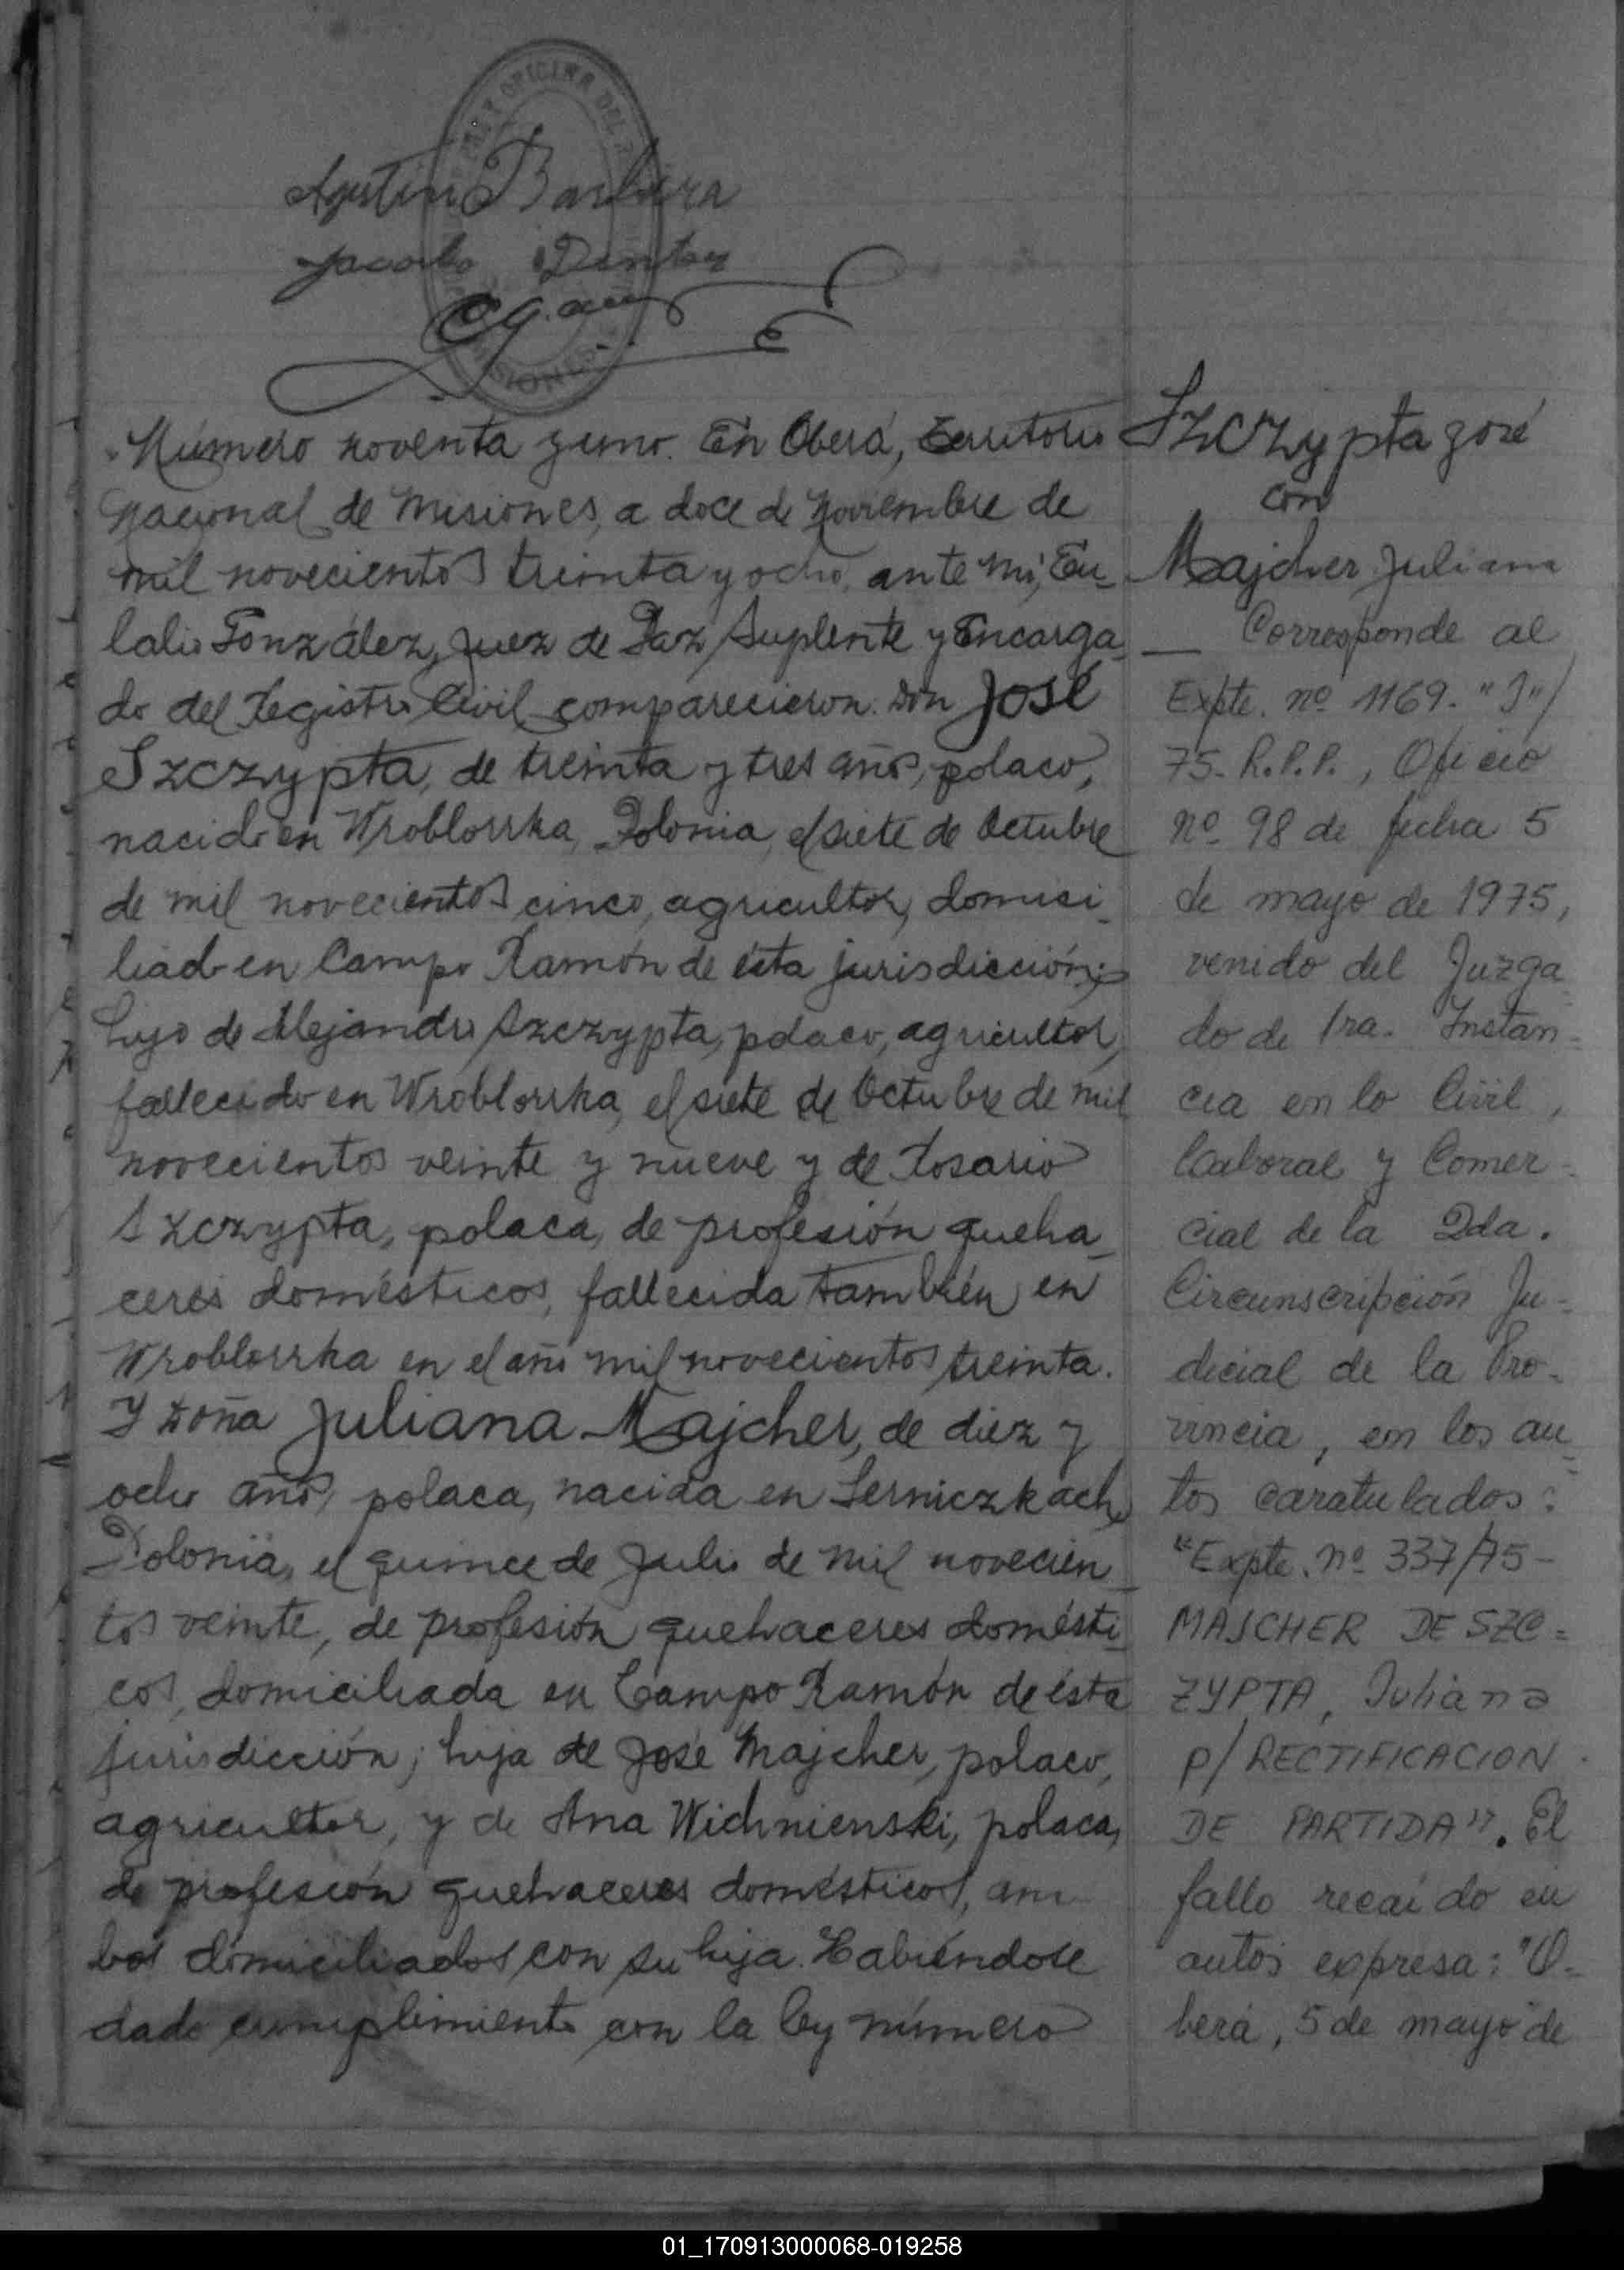 Agustín Barbera
Número noventa y uno. En Oberá, Territorio
Nacional de Misiones, a doce de Noviembre de
mil novecientos treinta y ocho, ante mí, Eu-
lalio González, Juez de Paz Suplente y Encarga-
do del Registro Civil comparecieron: Don José
Szczypta, de treinta y tres años, polaco,
nacido en Wroblorrka, Polonia, el siete de Octubre
de mil novecientos cinco, agricultor, domici-
liado en Campo Ramón de ésta jurisdicción;
hijo de Alejandro Szczypta, polaco, agricultor,
fallecido en Wroblorrka, el siete de Octubre de mil
novecientos veinte y nueve y de Rosario
Szczypta, polaca, de profesión queha-
ceres domésticos, fallecida también en
Wroblorrka en el año mil novecientos treinta.
Y Doña Juliana Majcher, de diez y
ocho años, polaca, nacida en Serniczkach,
Polonia, el quince de Julio de mil novecien-
tos veinte, de profesión quehaceres domésti-
cos, domiciliada en Campo Ramón de ésta
jurisdicción; hija de José Majcher, polaco,
agricultor, y de Ana Wichnienski, polaca,
de profesión quehaceres domésticos, am-
bos domiciliados con su hija. Habiéndose
dado cumplimiento con la ley número
Szczypta José
con
Majcher Juliana
— Corresponde al
Expte. nº 1169. "J"/
75. R.P.P., Oficio
nº 98 de fecha 5
de mayo de 1975,
venido del Juzga-
do de 1ra. Instan-
cia en lo Civil,
Laboral y Comer-
cial de la 2da.
Circunscripción Ju-
dicial de la Pro-
vincia, en los au-
tos caratulados:
"Expte. nº 337/75-
MAJCHER DE SZC=
ZYPTA, Juliana
p/ RECTIFICACION
DE PARTIDA". El
fallo recaído en
autos expresa: "O-
berá, 5 de mayo de
01_170913000068-019258